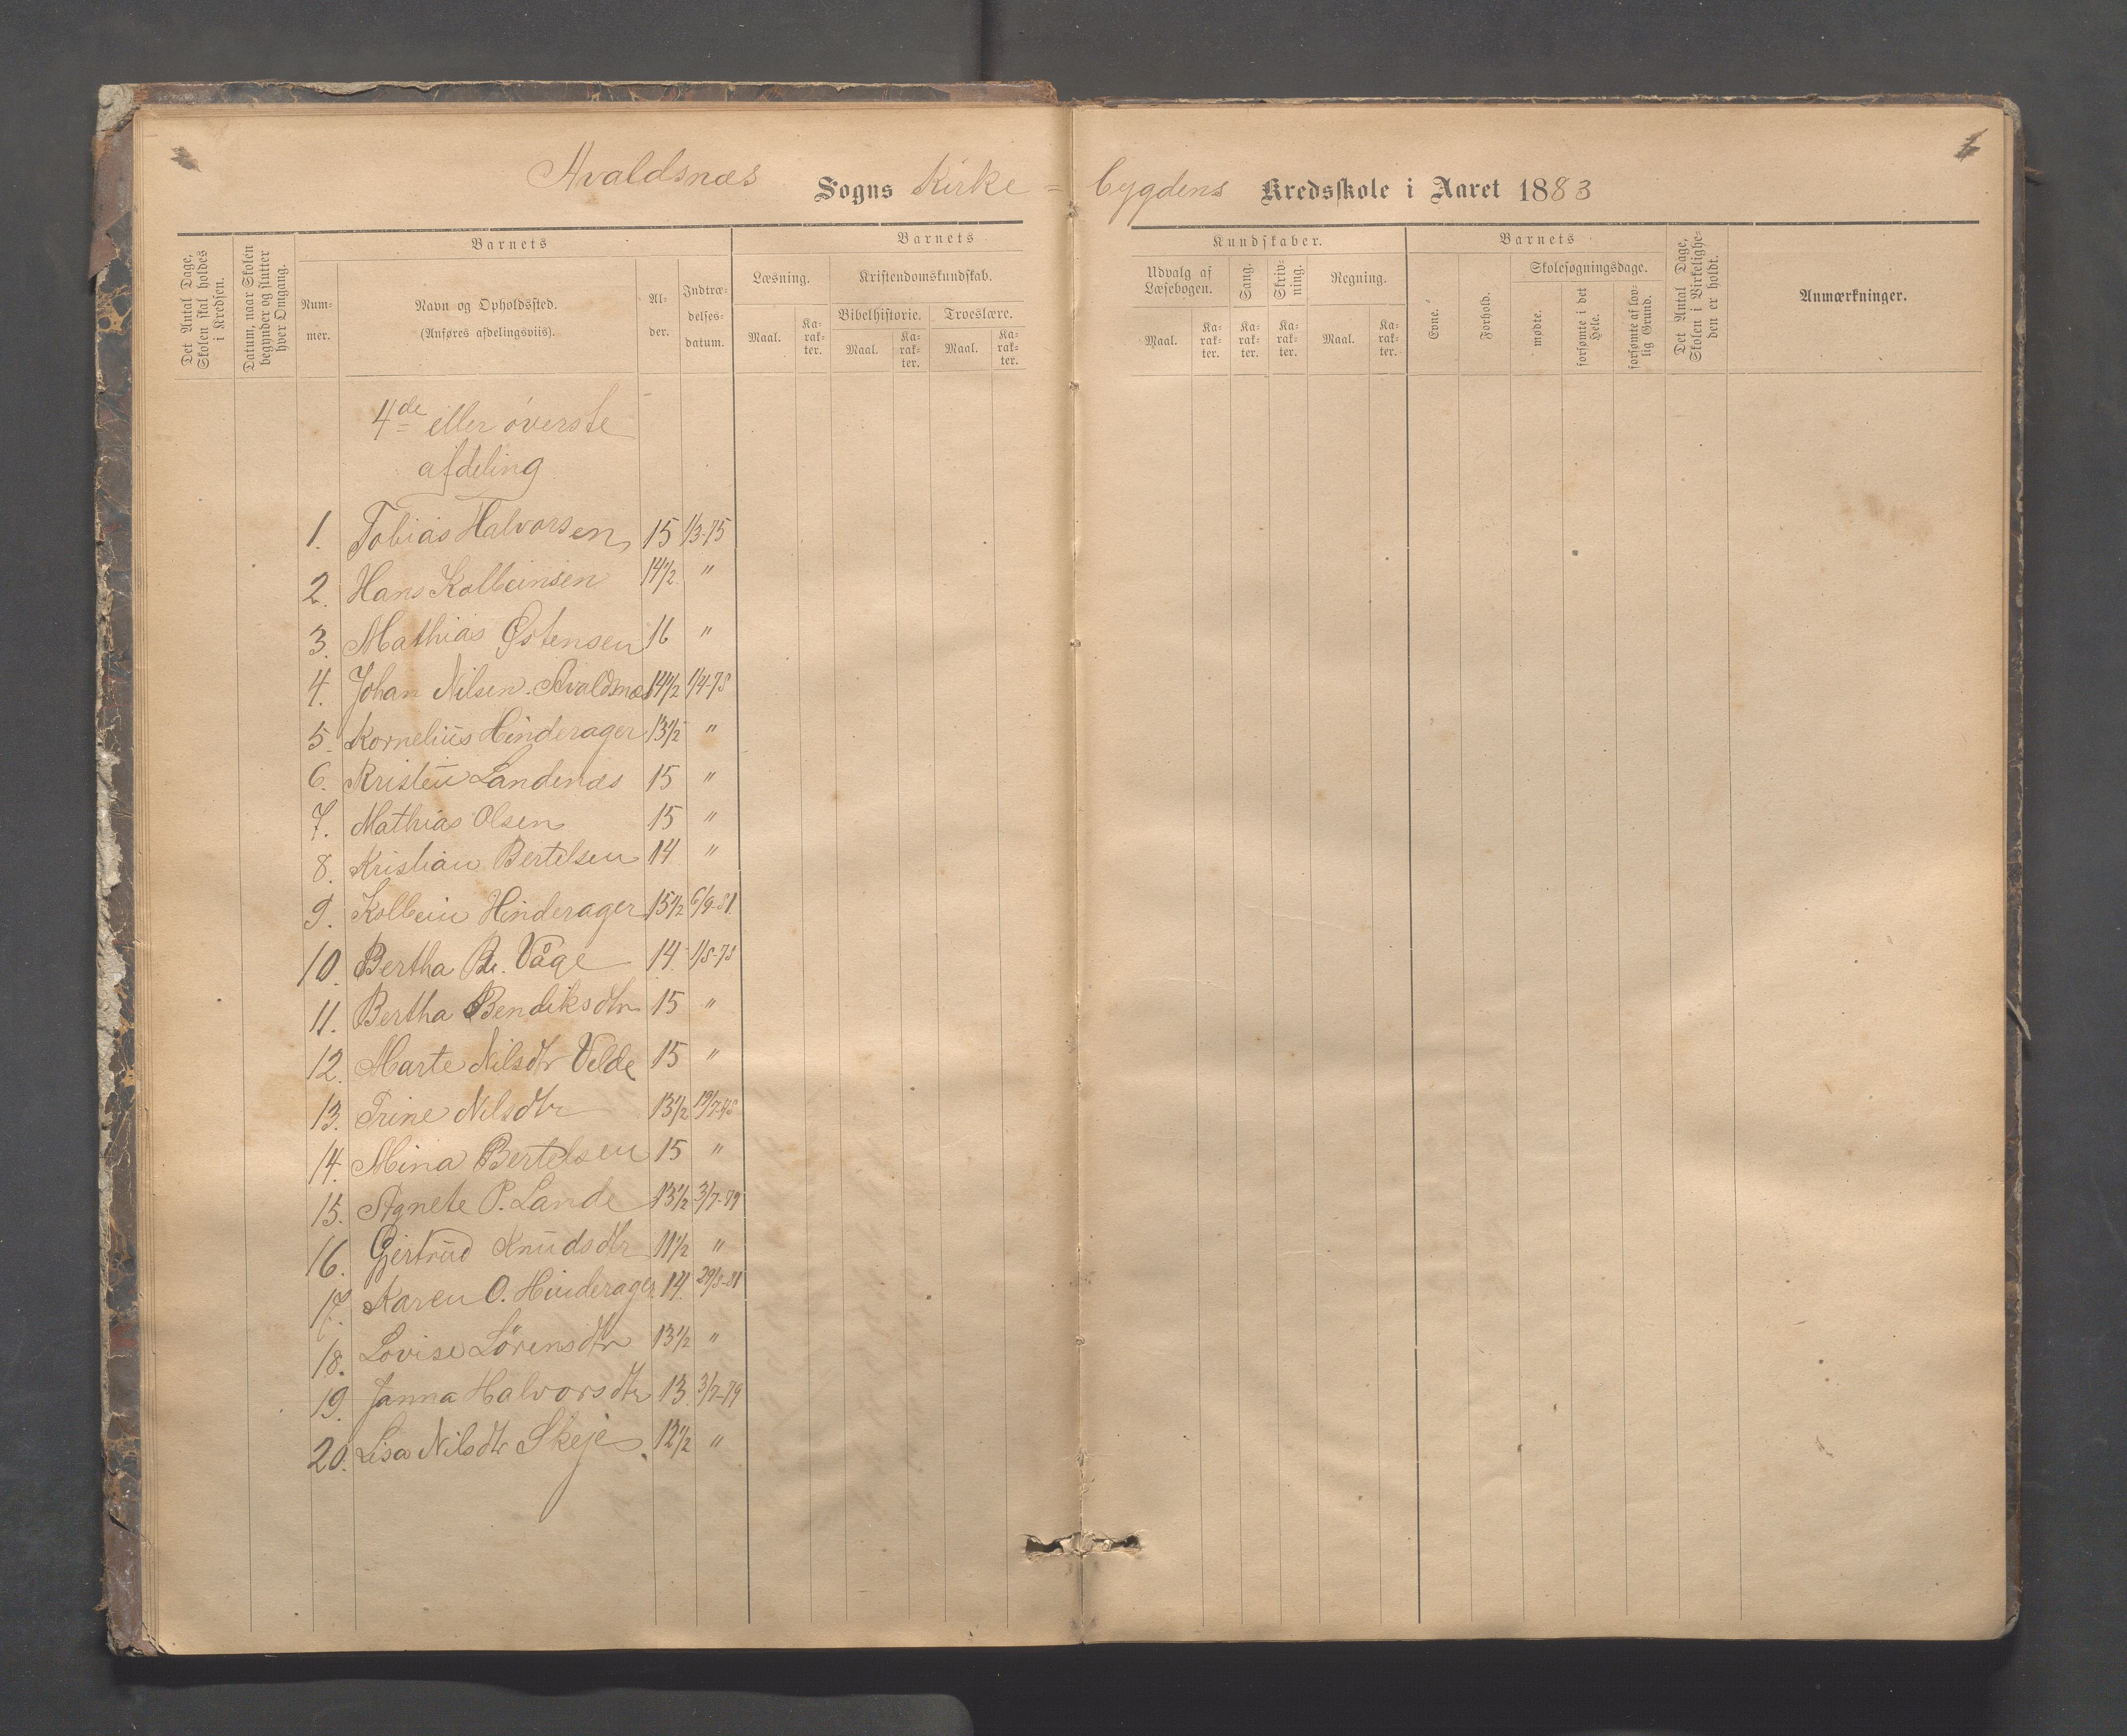 Avaldsnæs Sogns Kirke= bygdens Kredsskole i Aaret 1883
Det Antal Dage, Skolen skal holdes i Kredsen.
Datum, naar Skolen begynder og slutter hver Omgang.
Barnets
Num-
mer.
Navn og Opholdssted.
(Anføres afdelingsviis).
Al-
der.
Indtræ-
delses-
datum.
Barnets
Læsning.
Maal.
Ka-
rak-
ter.
Kristendomskundskab.
Bibelhistorie.
Maal.
Ka-
rak-
ter.
Troeslære.
Maal.
Ka-
rak-
ter.
Kundskaber.
Udvalg af
Læsebogen.
Maal.
Ka-
rak-
ter.
Sang.
Ka-
rak-
ter.
Skriv-
ning.
Ka-
rak-
ter.
Regning.
Maal.
Ka-
rak-
ter.
Barnets
Evne.
Forhold.
Skolesøgningsdage.
mødte.
forsømte i det
Hele.
forsømte af lov-
lig Grund.
Det Antal Dage,
Skolen i Virkelighe-
den er holdt.
Anmærkninger.
4de eller överste
afdeling
1. Tobias Halvorsen 15 1/3-75
2. Hans Kolbeinsen 14 1/2 "
3. Mathias Østensen 16 "
4. Johan Nilsen Avaldsnæs 14 1/2 1/4-78
5. Kornelius Hinderager 13 1/2 "
6. Kristen Landenæs 15 "
7. Mathias Olsen 15 "
8. Kristian Bertelsen 14 "
9. Kolbein Hinderager 15 1/2 6/9-81
10. Bertha Våge 14 1/8-78
11. Bertha Bendiksdtr 15 "
12. Marte Nilsdtr Velde 15 "
13. Trine Nilsdtr 13 1/2
14. Mina Bertelsen 15 "
15. Agnete P. Lande 13 1/2 3/7-79
16. Gjertrud Knudsdtr 11 1/2 "
17. Karen O. Hinderager 14 29/8-81
18. Lovise Sörensdtr 13 1/2 "
19. Janna Halvorsdtr 13 3/7-79
20. Lisa Nilsdtr Skeje 12 1/2 "